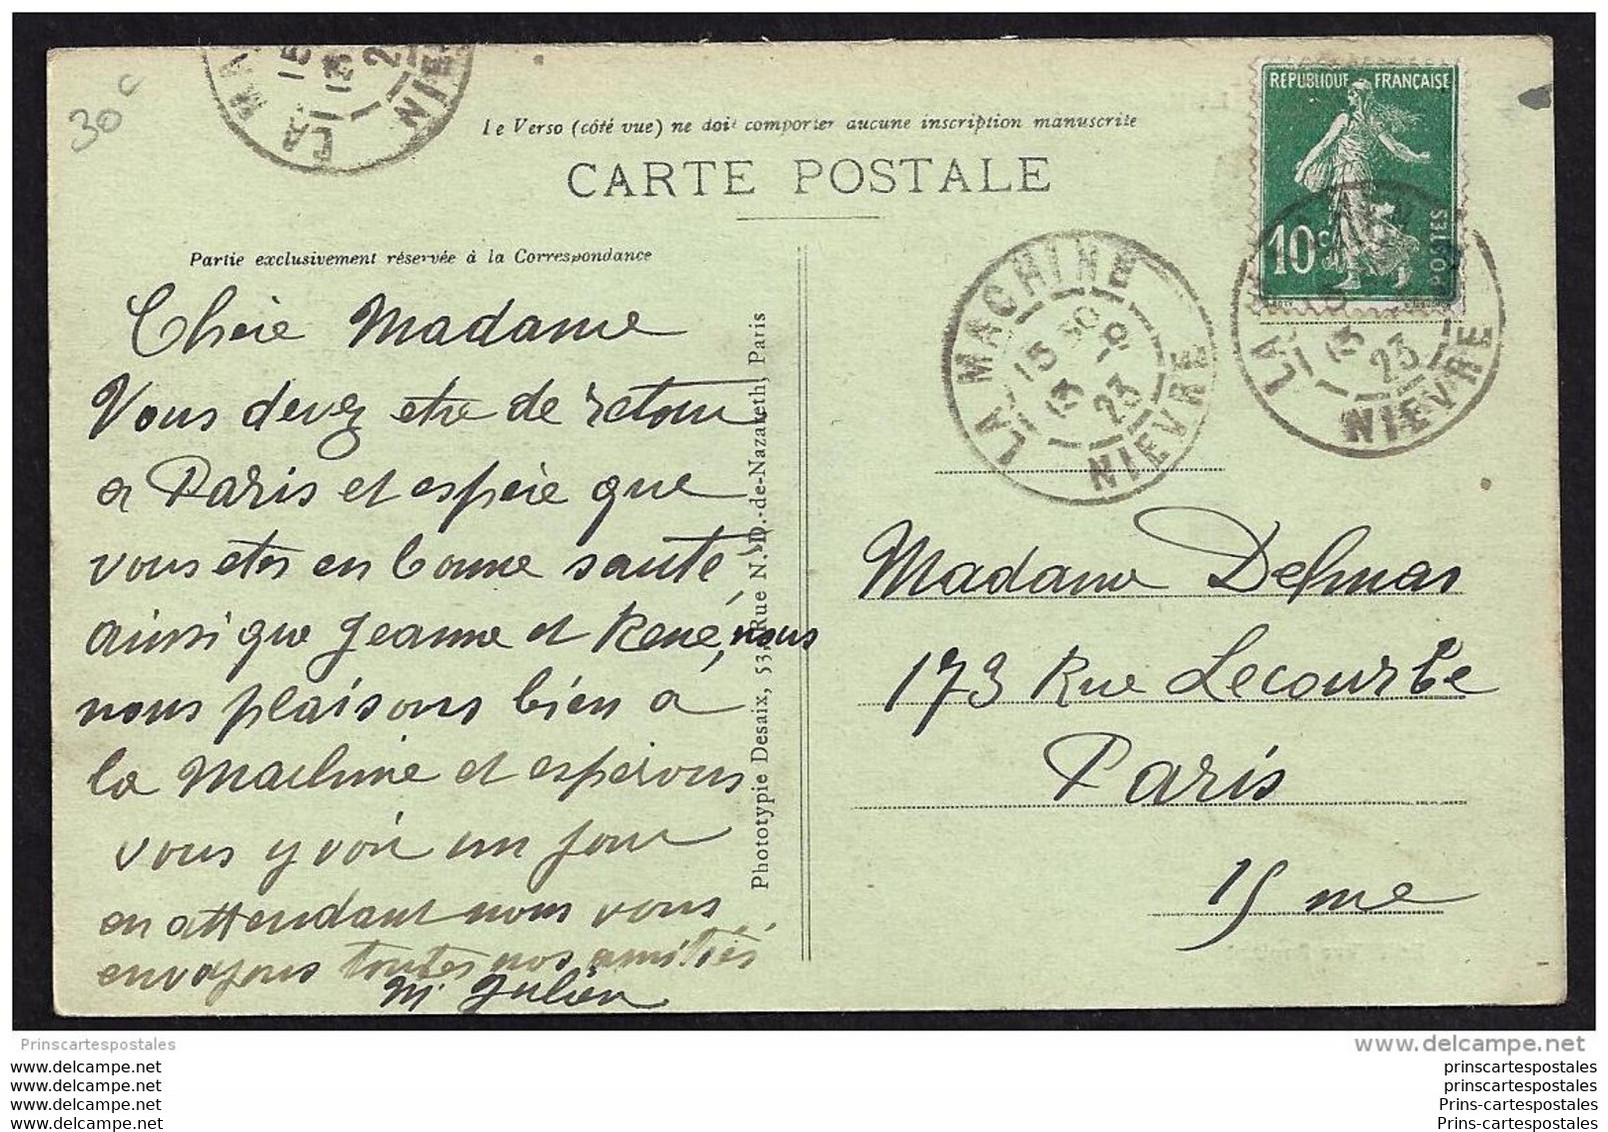 30 c
LA MA
NIE
Le Verso (côté vue) ne doit comporter aucune inscription manuscrite
CARTE POSTALE
REPUBLIQUE FRANÇAISE
10c
POSTES
LA MACHINE
15 30
13 -9
23
NIEVRE
LA
13
23
NIEVRE
Partie exclusivement réservée à la Correspondance
Chère Madame
Vous devez etre de retour
a Paris et espère que
vous etes en bonne santé
ainsi que Jeanne et René, nous
nous plaisons bien a
la Machine et espérons
vous y voir un jour
en attendant nous vous
envoyons toutes nos amitiés
M Julien
Phototypie Desaix, 53, Rue N.-D.-de-Nazareth, Paris
Madame Delmas
173 Rue Lecourbe
Paris
15 me
Prinscartespostales
www.delcampe.net
prinscartespostales
prinscartespostales
prinscartespostales
prinscartespostales
Prins-cartespostales
Prins-cartespostales
prinscartespostales
Prins-cartespostales